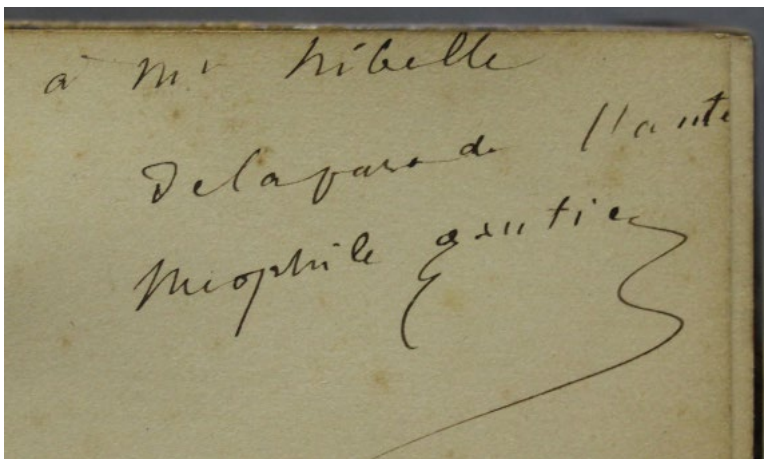 à Mr Nibelle
De la part de l'aute
Théophile Gautier